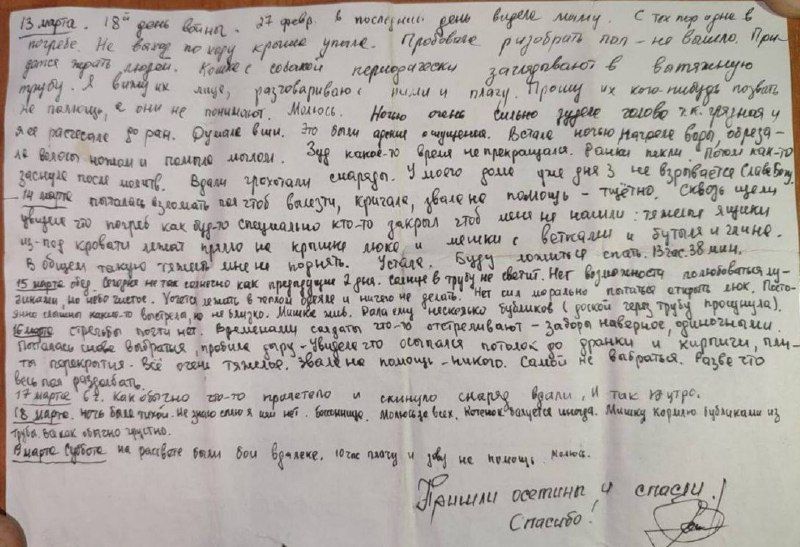 13 марта. 18й день войны. 27 февр. в последний день видела мышку. С тех пор одна в
погребе. Не выход по ходу крыша упала. Пробовала разобрать пол - не вышло. При-
дётся ждать людей. Кошка с собакой периодически заглядывают в вытяжную
трубу. Я вижу их лица, разговариваю с ними и плачу. Прошу их кого-нибудь позвать
на помощь, а они не понимают. Молюсь. Ночью очень сильно зудела голова т.к. грязная и
я её расчесала до ран. Думала вши. Это были адские ощущения. Встала ночью нагрела воды, обреза-
ла волосы ножом и помыла мылом. Зуд какое-то время не прекращался. Ранки пекли. Потом как-то
заснула после молитв. Вдали грохотали снаряды. У моего дома уже дня 3 не взрывается Слава Богу.
14 марта пыталась взломать пол чтоб вылезти, кричала, звала на помощь - тщетно. Сквозь щели
увидела что погреб как будто специально кто-то закрыл чтоб меня не нашли: тяжёлые ящики
из-под кровати лежат прямо на крышке люка и мешки с ветками и бутыля и глина.
В общем такую тяжесть мне не поднять. Устала. Буду ложиться спать. 13 час. 38 мин.
15 марта обед. Сегодня не так солнечно как предыдущие 2 дня. Солнце в трубу не светит. Нет возможности полюбоваться лу-
чиками, но небо чистое. Хочется лежать в тёплом одеяле и ничего не делать. Нет сил морально пытаться открыть люк. Посто-
янно слышны какие-то выстрелы, но не близко. Мишка жив. Дала ему несколько бубликов (доской через трубу просунула).
16 марта стрельбы почти нет. Временами солдаты что-то отстреливают - заборы наверное, одиночными.
Пыталась снова выбраться, пробила дыру - увидела что осыпался потолок до дранки и кирпичи, пли-
ты перекрытия. Всё очень тяжёлое. Звала на помощь - никого. Самой не выбраться. Разве что
весь пол раздолбать.
17 марта 6 ч. как обычно что-то пролетело и скинуло снаряд вдали. И так утро.
18 марта. Ночь была тихой. Не знаю сплю я или нет. Молюсь за всех. Котёнок балуется иногда. Мишку кормлю бубликами из
трубы. как обычно грустно.
19 марта Суббота на рассвете были бои вдалеке. 10 час плачу и зову на помощь. Молюсь.
Пришли осетины и спасли!
Спасибо!